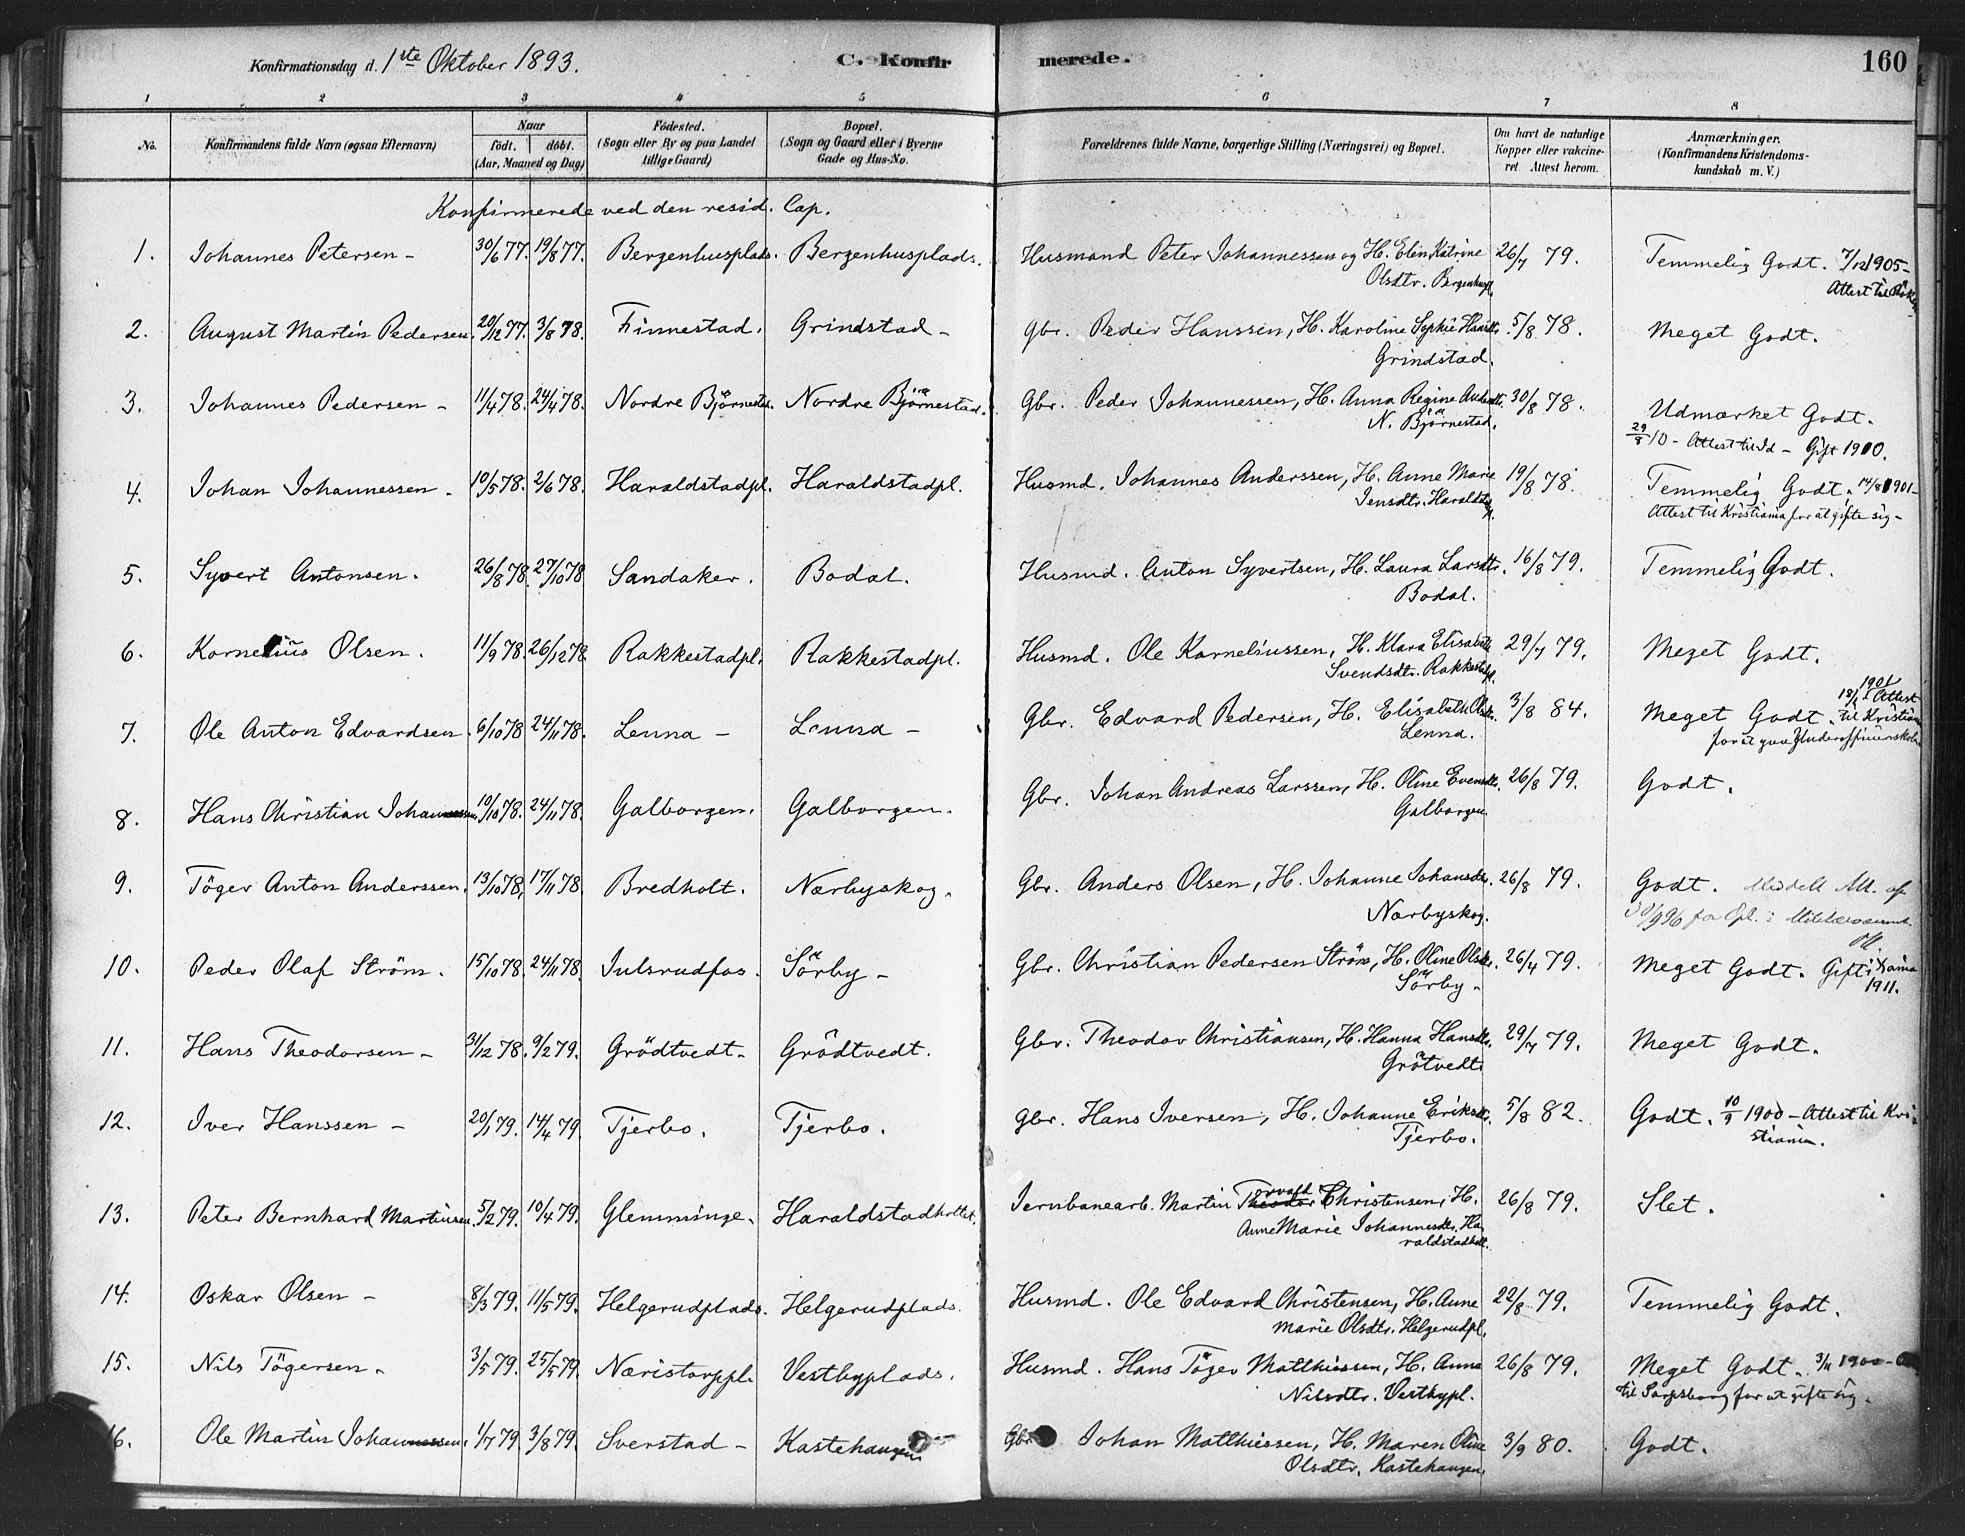 Konfirmationsdag d. 1ste Oktober 1893. C. Konfirmerede. 160
1 2 3 4 5 6 7 8
No. Konfirmandens fulde Navn (ogsaa Efternavn) Naar født. døbt. (Aar, Maaned og Dag) Fødested. (Sogn eller By og paa Landet tillige Gaard) Bopæl. (Sogn og Gaard eller i Byerne Gade og Hus-No. Forældrenes fulde Navne, borgerlige Stilling (Næringsvei) og Bopæl. Om havt de naturlige Kopper eller vakcineret. Attest herom. Anmærkninger. (Konfirmandens Kristendomskundskab m. V.)
Konfirmerede ved den resid. Cap.
1. Johannes Petersen - 30/6 77. 19/8 77. Bergenhusplads. Bergenhusplads. Husmand Peter Johannessen og H. Elen Katrine 26/7 79. Temmelig Godt. 7/12 1905-
Olsdtr. Bergenhuspl. Attest til
2. August Martin Pedersen. 20/12 77. 3/8 78. Finnestad. Grindstad - Gbr. Peder Hanssen, H. Karoline Sophie Hansdtr. 5/8 78. Meget Godt.
Grindstad.
3. Johannes Pedersen - 11/4 78. 24/4 78. Nordre Björnestad. Nordre Björnestad. Gbr. Peder Johannessen, H. Anna Regine Andersdtr. 30/8 78. Udmærket Godt.
N. Björnestad. 29/8 10 - Attest til Id - Gift 1910.
4. Johan Johannessen - 10/5 78. 2/6 78. Haraldstadpl. Haraldstadpl. Husmd. Johannes Anderssen, H. Anne Marie 19/8 78. Temmelig Godt. 14/8 1901-
Jensdtr. Haraldstadpl. Attest til Kristiania for at gifte sig -
5. Syvert Antonsen. 26/8 78. 27/10 78 Sandaker. Bodal. Husmd. Anton Syvertsen, H. Laura Larsdtr. 16/8 79. Temmelig Godt.
Bodal.
6. Kornelius Olsen. 11/9 78. 26/12 78. Rakkestadpl. Rakkestadpl. Husmd. Ole Korneliussen, H. Klara Elisabeth 29/7 79. Meget Godt.
Svendsdtr. Rakkestadpl.
7. Ole Anton Edvardsen. 6/10 78 24/11 78. Lenna - Lenna - Gbr. Edvard Pedersen, H. Elisabeth Olsdtr. 3/8 84. Meget Godt. 1901 Attest til Kristiania
Lenna. for at gaa Underofficerskolen
8. Hans Christian Johannessen. 10/10 78. 24/11 78. Galborgen. Galborgen. Gbr. Johan Andreas Larssen, H. Oline Evensdtr. 26/8 79. Godt.
Galborgen
9. Töger Anton Anderssen. 13/10 78. 17/11 78. Bredholt. Nærbyskog. Gbr. Anders Olsen, H. Johanne Johansdtr. 26/8 79. Godt. Meddelt Att. af
Nærbyskog. 30/9 96 for Opl. i
10. Peder Olaf Ström. 15/10 78. 24/11 78. Julsrudfos. Sörby - Gbr. Christian Pedersen Ström, H. Oline Olsdtr. 26/4 79. Meget Godt. Gift i Xania
Sörby - 1911.
11. Hans Theodorsen - 31/12 78. 9/2 79. Grödtvedt - Grödtvedt. Gbr. Theodor Christiansen, H. Hanna Hansdtr. 29/7 79. Meget Godt.
Grötvedt
12. Iver Hanssen - 20/1 79. 14/4 79. Tjerbo. Tjerbo. Gbr. Hans Iversen, H. Johanne Eriksdtr. 5/8 82. Godt. 10/9 1900 - Attest til Kri-
Tjerbo. stiania.
13. Peter Bernhard Martinsen. 5/2 79. 10/4 79. Glemminge. Haraldstadholtet. Jernbanearb. Martin Theodor Torvald Christensen, H. 26/8 79. Slet.
Anne Marie Johannesdtr. Ha-
raldstadholt.
14. Oskar Olsen - 8/3 79. 11/5 79. Helgerudplads. Helgerudplads. Husmd. Ole Edvard Christensen, H. Anne 22/8 79. Temmelig Godt.
Marie Olsdtr. Helgerudpl.
15. Nils Tögersen - 3/5 79. 25/5 79. Næristorppl. Vestbyplads. Husmd. Hans Töger Matthiessen, H. Anna 26/8 79. Meget Godt. 3/11 1900 -
Nilsdtr. Vestbypl. til Sarpsborg for at gifte sig.
16. Ole Martin Johannessen. 1/7 79 3/8 79. Sverstad - Kastehaugen Gbr. Johan Matthiessen, H. Maren Oline 3/9 80. Godt.
Olsdtr. Kastehaugen.